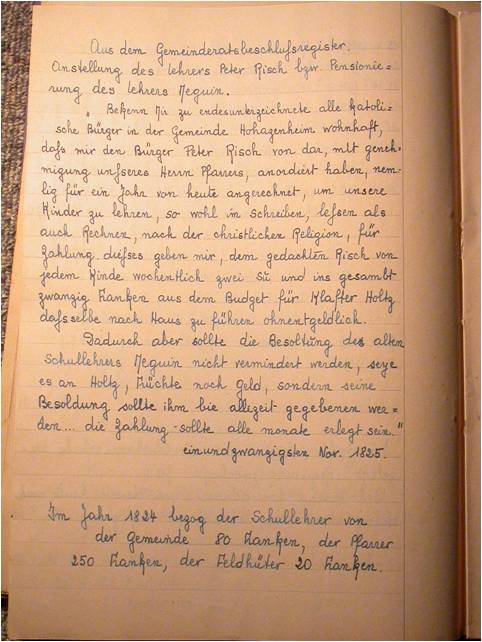 Aus dem Gemeinderatsbeschlußregister.
Anstellung des Lehrers Peter Risch bzw. Pensionie=
rung des Lehrers Meguin.
„Bekenn Mir zu endesunterzeichnete alle katoli=
sche Bürger in der Gemeinde Hohazenheim wohnhaft,
daß mir den Bürger Peter Risch von dar, mit geneh=
migung unsseres Herrn Pfarrers, anordiert haben, nem=
lig für ein Jahr von heute angerechnet, um unsere
Kinder zu lehren, so wohl im Schreiben, leßen als
auch Rechnen, nach der christlichen Religion, für
Zahlung dießes geben mir, dem gedachten Risch von
jedem Kinde wochentlich zwei Sú und ins gesambt
zwanzig Franken aus dem Budget für Klafter Holtz
daßselbe nach Haus zu führen ohnentgeldlich.
Dadurch aber sollte die Besoltung des alten
Schullehrers Meguin nicht vermindert werden, seye
es an Holtz, Früchte noch Geld, sondern seine
Besoldung sollte ihm bie allizeit gegebenen wer=
den... die Zahlung sollte alle monate erlegt sein."
einundzwanzigsten Nov. 1825.
Im Jahr 1824 bezog der Schullehrer von
der Gemeinde 80 Franken, der Pfarrer
250 Franken, der Feldhüter 20 Franken.